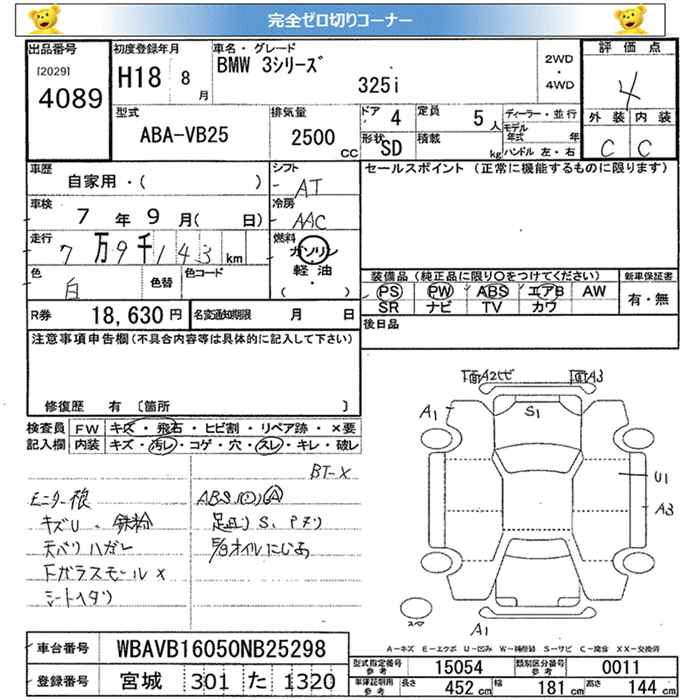 完全ゼロ切りコーナー
出品番号
[2029]
4089
初度登録年月
H18 8 月
車名・グレード
BMW 3シリーズ
325i
2WD
・
4WD
評価点
4
外装 内装
C C
型式
ABA-VB25
排気量
2500 CC
ドア 4
定員 5 人
形状 SD
積載 kg
ディーラー・並行
モデル年式 年
ハンドル 左・右
車歴
自家用・( )
シフト
AT
セールスポイント (正常に機能するものに限ります)
車検
7 年 9 月( 日)
冷房
AAC
走行
7万9千143km
燃料
ガソリン
・
軽油
( ・ )
色
白
色替
色コード
装備品 (純正品に限り○をつけてください)
新車保証書
PS PW ABS エアB AW
SR ナビ TV カワ
有・無
R券 18,630 円
名変通知期限 月 日
後日品
注意事項申告欄(不具合内容等は具体的に記入して下さい)
修復歴 有 〔箇所 〕
検査員記入欄
FW キズ・飛石・ヒビ割・リペア跡・×要
内装 キズ・汚レ・コゲ・穴・スレ・キレ・破レ
BT-X
キズU・鉄粉
天バリハガレ
Fガラスモール×
シートヘタリ
下面A3
A1
S1
U1
A3
A1
A=キズ E=エクボ U=凹み W=補修跡 S=サビ C=腐食 XX=交換済
車台番号 WBAVB16050NB25298
登録番号 宮城 301 た 1320
型式指定番号 参考 15054
類別区分番号 参考 0011
車検証割用 参考 長さ 452 cm 幅 181 cm 高さ 144 cm